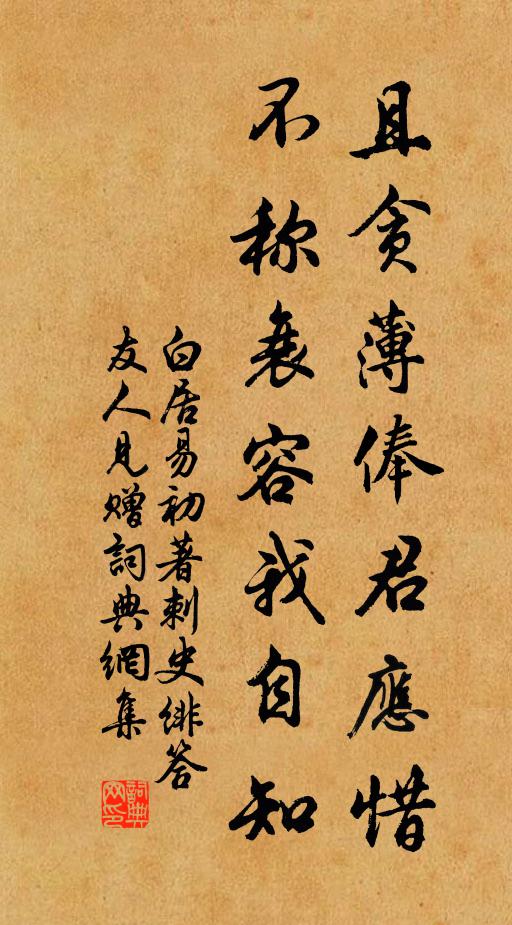 且贪薄俸君應惜
不称衰容我自知
白居易初著刺史緋答
友人見赠詞典網集
詞典
网印